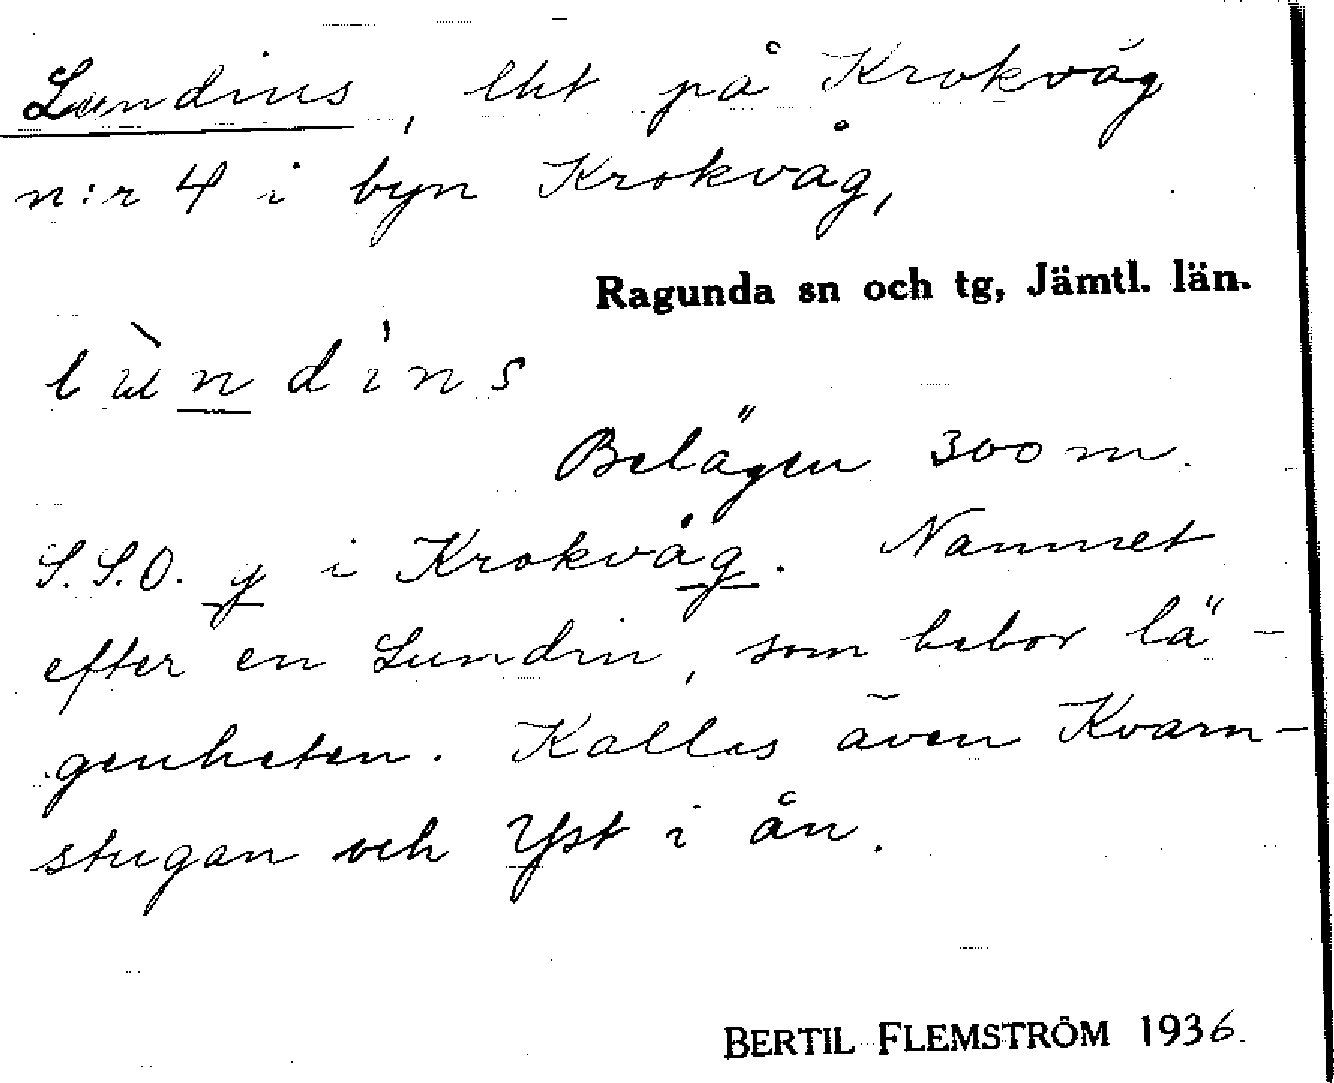 Lundins, lht på Krokvåg
n:r 4 i byn Krokvåg,
Ragunda sn och tg, Jämtl. län.
lùndi̍ns
Belägen 300 m.
S.S.O. g i Krokvåg. Namnet
efter en Lundin, som bebor lä-
genheten. Kallas även Kvarn-
stugan och Yst i ån.
BERTIL FLEMSTRÖM 1936.